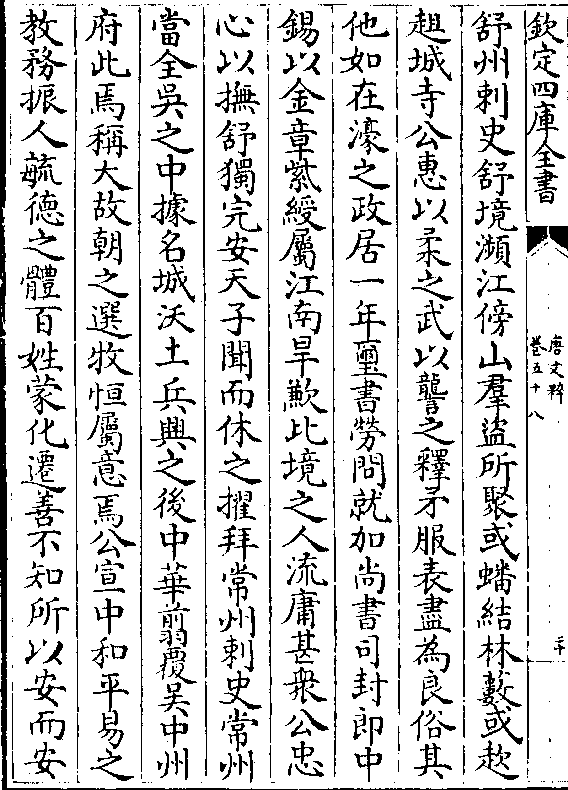 欽定四庫全書
唐文粹
卷五十八
二十
舒州刺史舒境瀕江傍山羣盜所聚或蟠結林藪或趑
趄城寺公惠以柔之武以讋之釋矛服表盡為良俗其
他如在濠之政居一年璽書勞問就加尚書司封郎中
錫以金章紫綬屬江南旱歉比境之人流庸甚衆公忠
心以撫舒獨完安天子聞而休之擢拜常州刺史常州
當全吳之中據名城沃土兵興之後中華翦覆吳中州
府此焉稱大故朝之選牧恒屬意焉公宣中和平易之
教務振人毓德之體百姓蒙化遷善不知所以安而安